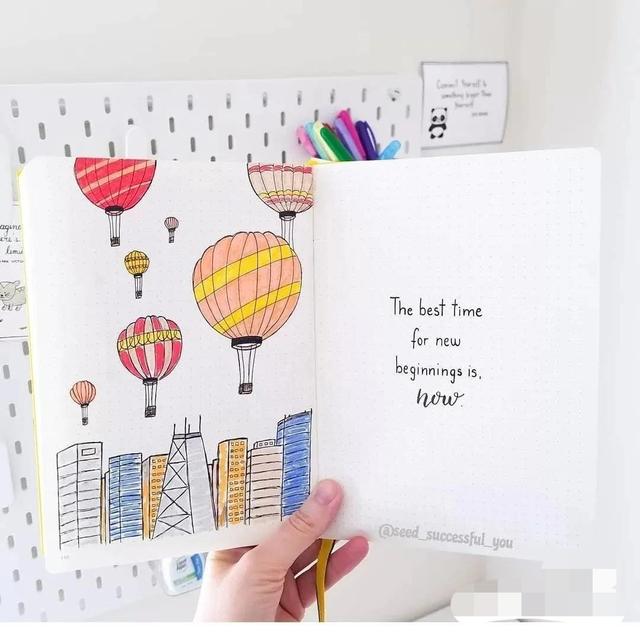 The best time
for new
beginnings is,
now.
@seed_successful_you
Commit Yourself to
something bigger than
Yourself